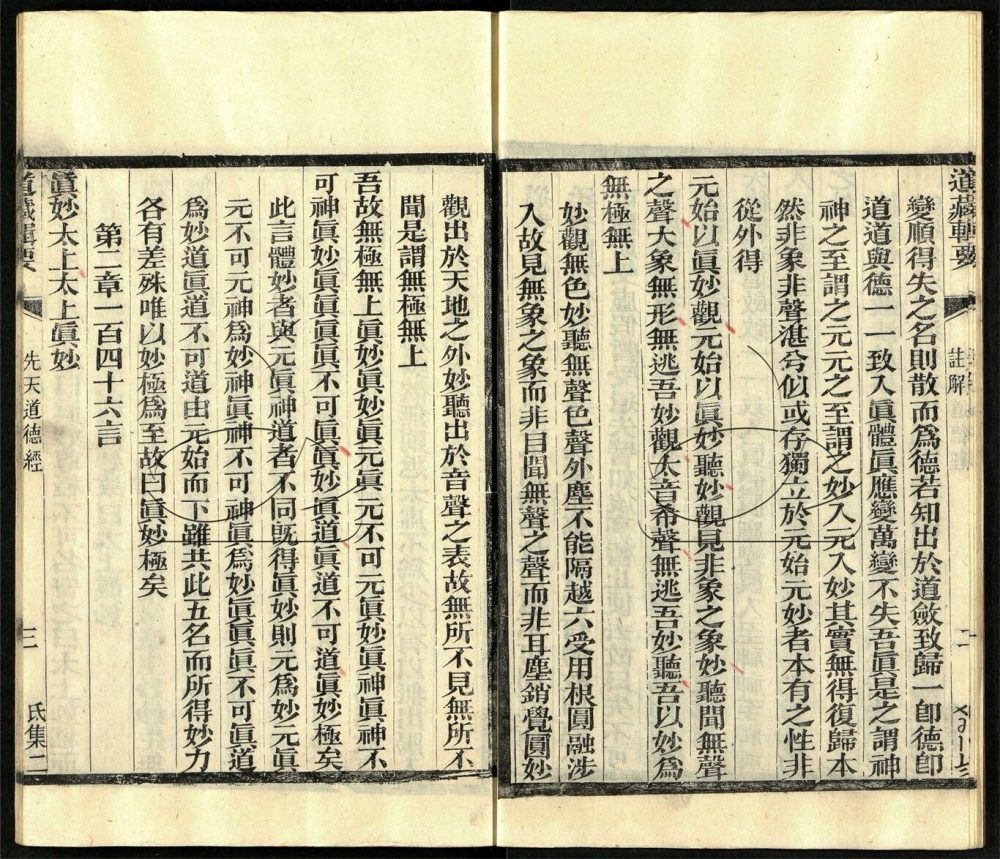 道藏輯要
註解
二
變順得失之名則散而爲德若知出於道斂致歸一卽德卽
道道與德一一致入眞體眞應變萬變不失吾眞是之謂神
神之至謂之元元之至謂之妙入元入妙其實無得復歸本
然非象非聲湛兮似或存獨立於元始元妙者本有之性非
從外得
元始以眞妙觀元始以眞妙聽妙觀見非象之象妙聽聞無聲
之聲大象無形無逃吾妙觀太音希聲無逃吾妙聽吾以妙爲
無極無上
妙觀無色妙聽無聲色聲外塵不能隔越六受用根圓融涉
入故見無象之象而非目聞無聲之聲而非耳塵銷覺圓妙
觀出於天地之外妙聽出於音聲之表故無所不見無所不
聞是謂無極無上
吾故無極無上眞妙眞妙眞元眞元不可元眞妙眞神眞神不
可神眞妙眞眞眞眞不可眞眞妙眞道眞道不可道眞妙極矣
此言體妙者與元眞神道者不同旣得眞妙則元爲妙元眞
元不可元神爲妙神眞神不可神眞爲妙眞眞眞不可眞道
爲妙道眞道不可道由元始而下雖共此五名而所得妙力
各有差殊唯以妙極爲至故曰眞妙極矣
第二章一百四十六言
眞妙太上太上眞妙
道藏輯要
先天道德經
三
氐集二